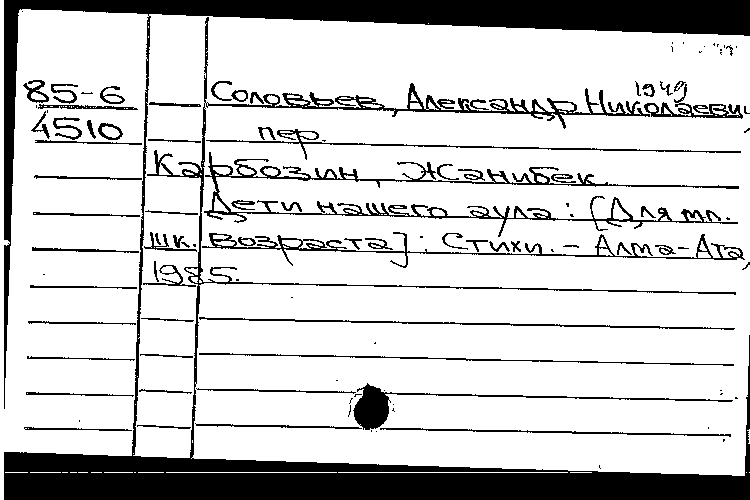 1949
85-6 Соловьев, Александр Николаевич,
4510 пер.
Карбозин, Жанибек.
Дети нашего аула: [Для мл.
шк. возраста]: Стихи. - Алма-Ата,
1985.